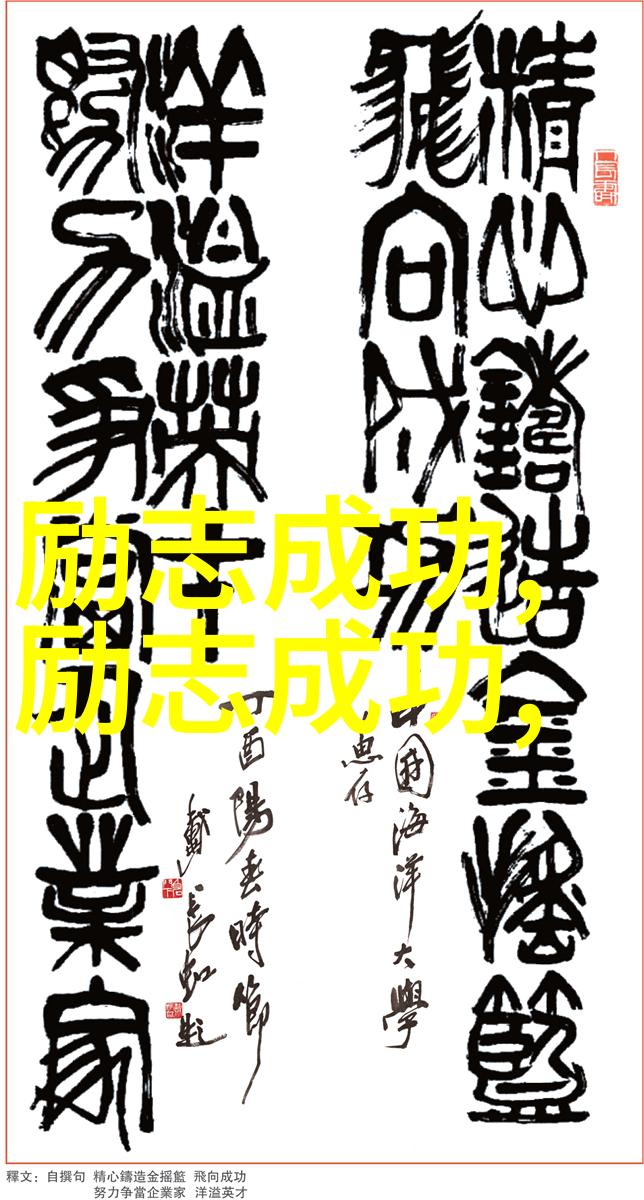 精心鑄造金搖籃
飛向成功
中國海洋大學
惠存
努力爭當企業家
洋溢英才
丁酉陽春時節
戴長虹題
励志成功,
励志成功,
釋文：自撰句 精心鑄造金摇籃 飛向成功
努力争當企業家 洋溢英才